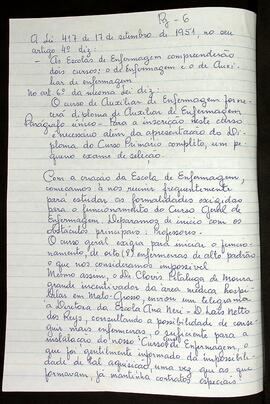 Pg - 6
A Lei 417 de 17 de setembro de 1951, no seu
artigo 4º diz:
- As Escolas de Enfermagem compreenderão
dois cursos; o de Enfermagem e o de Auxi-
liar de enfermagem.
No art. 6º da mesma lei diz:
O curso de Auxiliar de Enfermagem forne-
cerá diploma de Auxiliar de Enfermagem
Parágrafo único - Para a inscrição neste curso
é necessário além da apresentação do Di-
ploma do Curso Primário completo, um pe-
queno exame de seleção.
Com a criação da Escola de Enfermagem,
começamos à nos reunir frequentemente
para estudar as formalidades exigidas
para o funcionamento do Curso Geral de
Enfermagem. Deparamos de início com os
obstáculos principais: Professores.
O curso geral exigia para iniciar o funcio-
namento, de oito (8) enfermeiras de alto padrão
o que nos considerámos impossível.
Mesmo assim, o Dr. Clovis Pitaluga de Moura
grande incentivador da área médica hospi-
talar em Mato-Grosso, enviou um telegrama
à Diretora da Escola Ana Neri - D. Lais Netto
dos Reys, consultando a possibilidade de conse-
guir mais enfermeiras, o suficiente para a
instalação do nosso "Curso de Enfermagem", o
que foi gentilmente informado da impossibili-
dade de tal aquisição, uma vez que as que
formavam, já mantinha contratos especiais